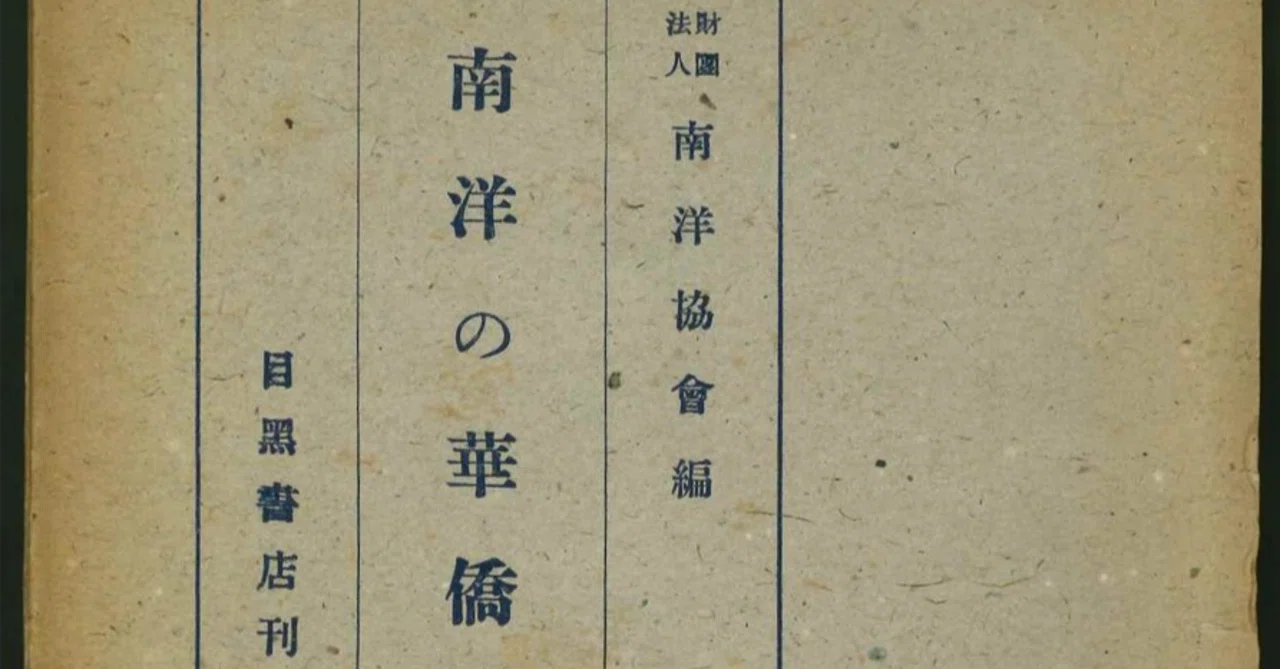 財團法人
南洋協會編
南洋の華僑
目黑書店刊